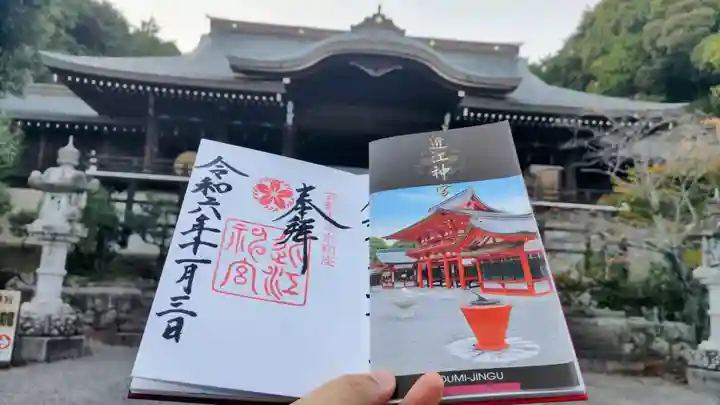 奉拝
近江
神宮
令和六年十一月三日
近江神宮
OUMI-JINGU